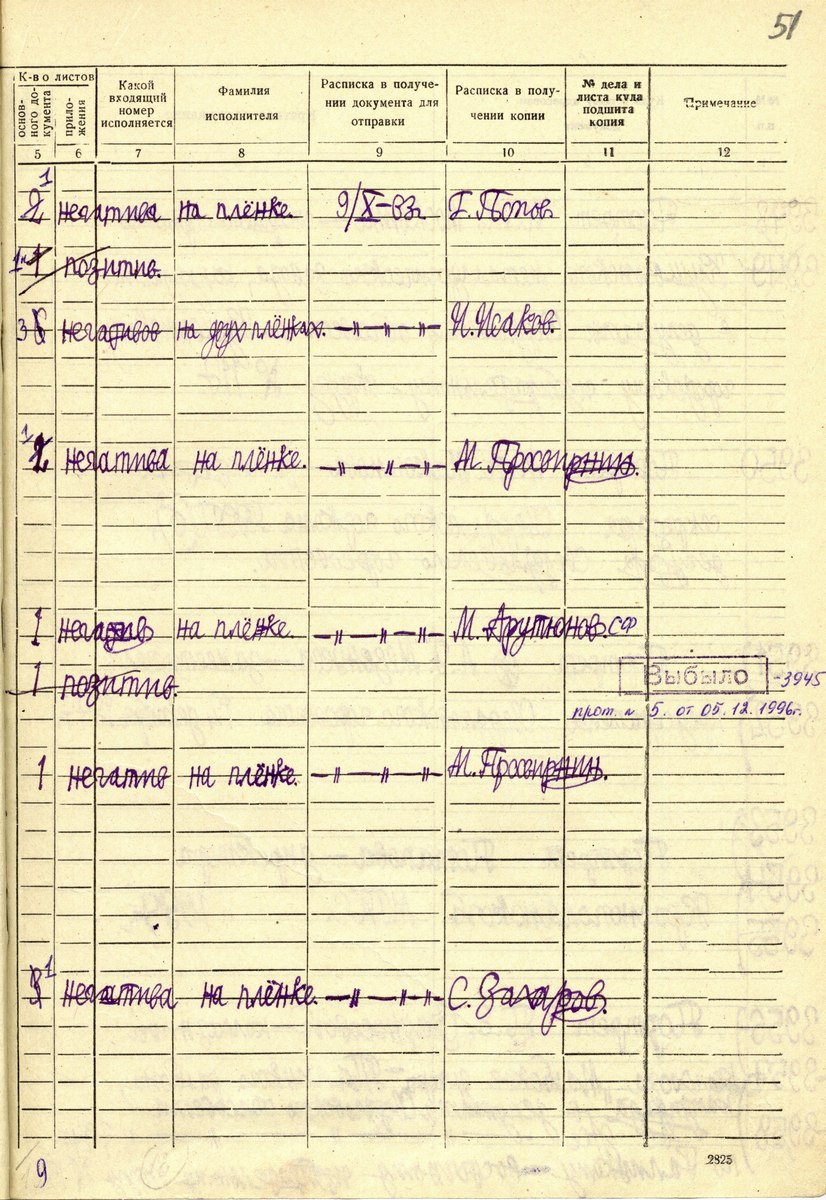 51
К-во листов
основного документа
приложения
Какой входящий номер исполняется
Фамилия исполнителя
Расписка в получении документа для отправки
Расписка в получении копии
№ дела и листа куда подшита копия
Примечание
5 6 7 8 9 10 11 12
1
2 негатива на плёнке. 9/X-83г. Г. Попов
1 позитив.
3 негативов на двух плёнках. —〃—〃—〃— И. Исаков.
1
2 негатива на плёнке. —〃—〃—〃— М. Просвирнин.
1 негатив на плёнке. —〃—〃—〃— М. Арутюнов. СФ
1 позитив.
Выбыло -3945
прот. № 5. от 05.12.1996г.
1 негатив на плёнке. —〃—〃—〃— М. Просвирнин.
1
3 негатива на плёнке. —〃—〃—〃— С. Захаров.
9
2825